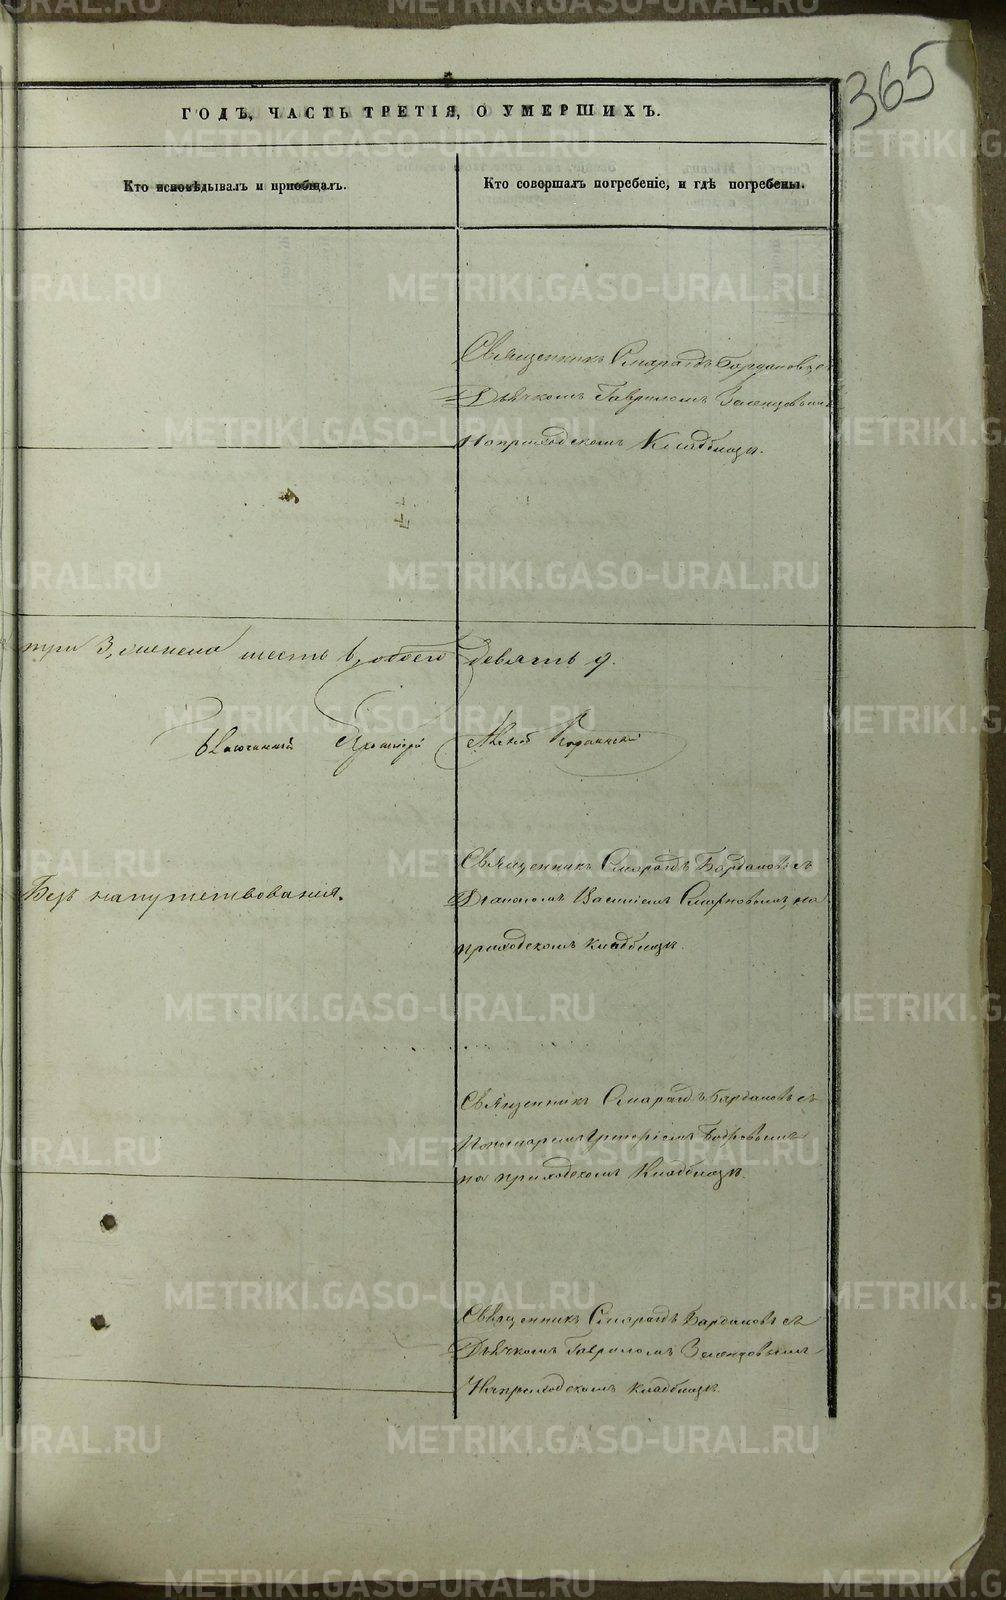 365
ГОДЪ, ЧАСТЬ ТРЕТІЯ, О УМЕРШИХЪ.
Кто исповѣдывалъ и пріобщалъ.
Кто совершалъ погребеніе, и гдѣ погребены.
Священникъ Смарагдъ Бардаковъ съ
Дьячкомъ Гавриломъ Зеленцовымъ
На приходскомъ Кладбищѣ.
три 3, женска шесть 6, обоего девять 9.
Благочинный Алексѣй
Безъ напутствованія.
Священникъ Смарагдъ Бардаковъ съ
Діакономъ Василіемъ Смирновымъ, на
приходскомъ кладбищѣ.
Священникъ Смарагдъ Бардаковъ съ
Пономаремъ Григоріемъ Бобровымъ
на приходскомъ Кладбищѣ.
Священникъ Смарагдъ Бардаковъ съ
Дьячкомъ Гавриломъ Зеленцовымъ
На приходскомъ кладбищѣ.
METRIKI.GASO-URAL.RU